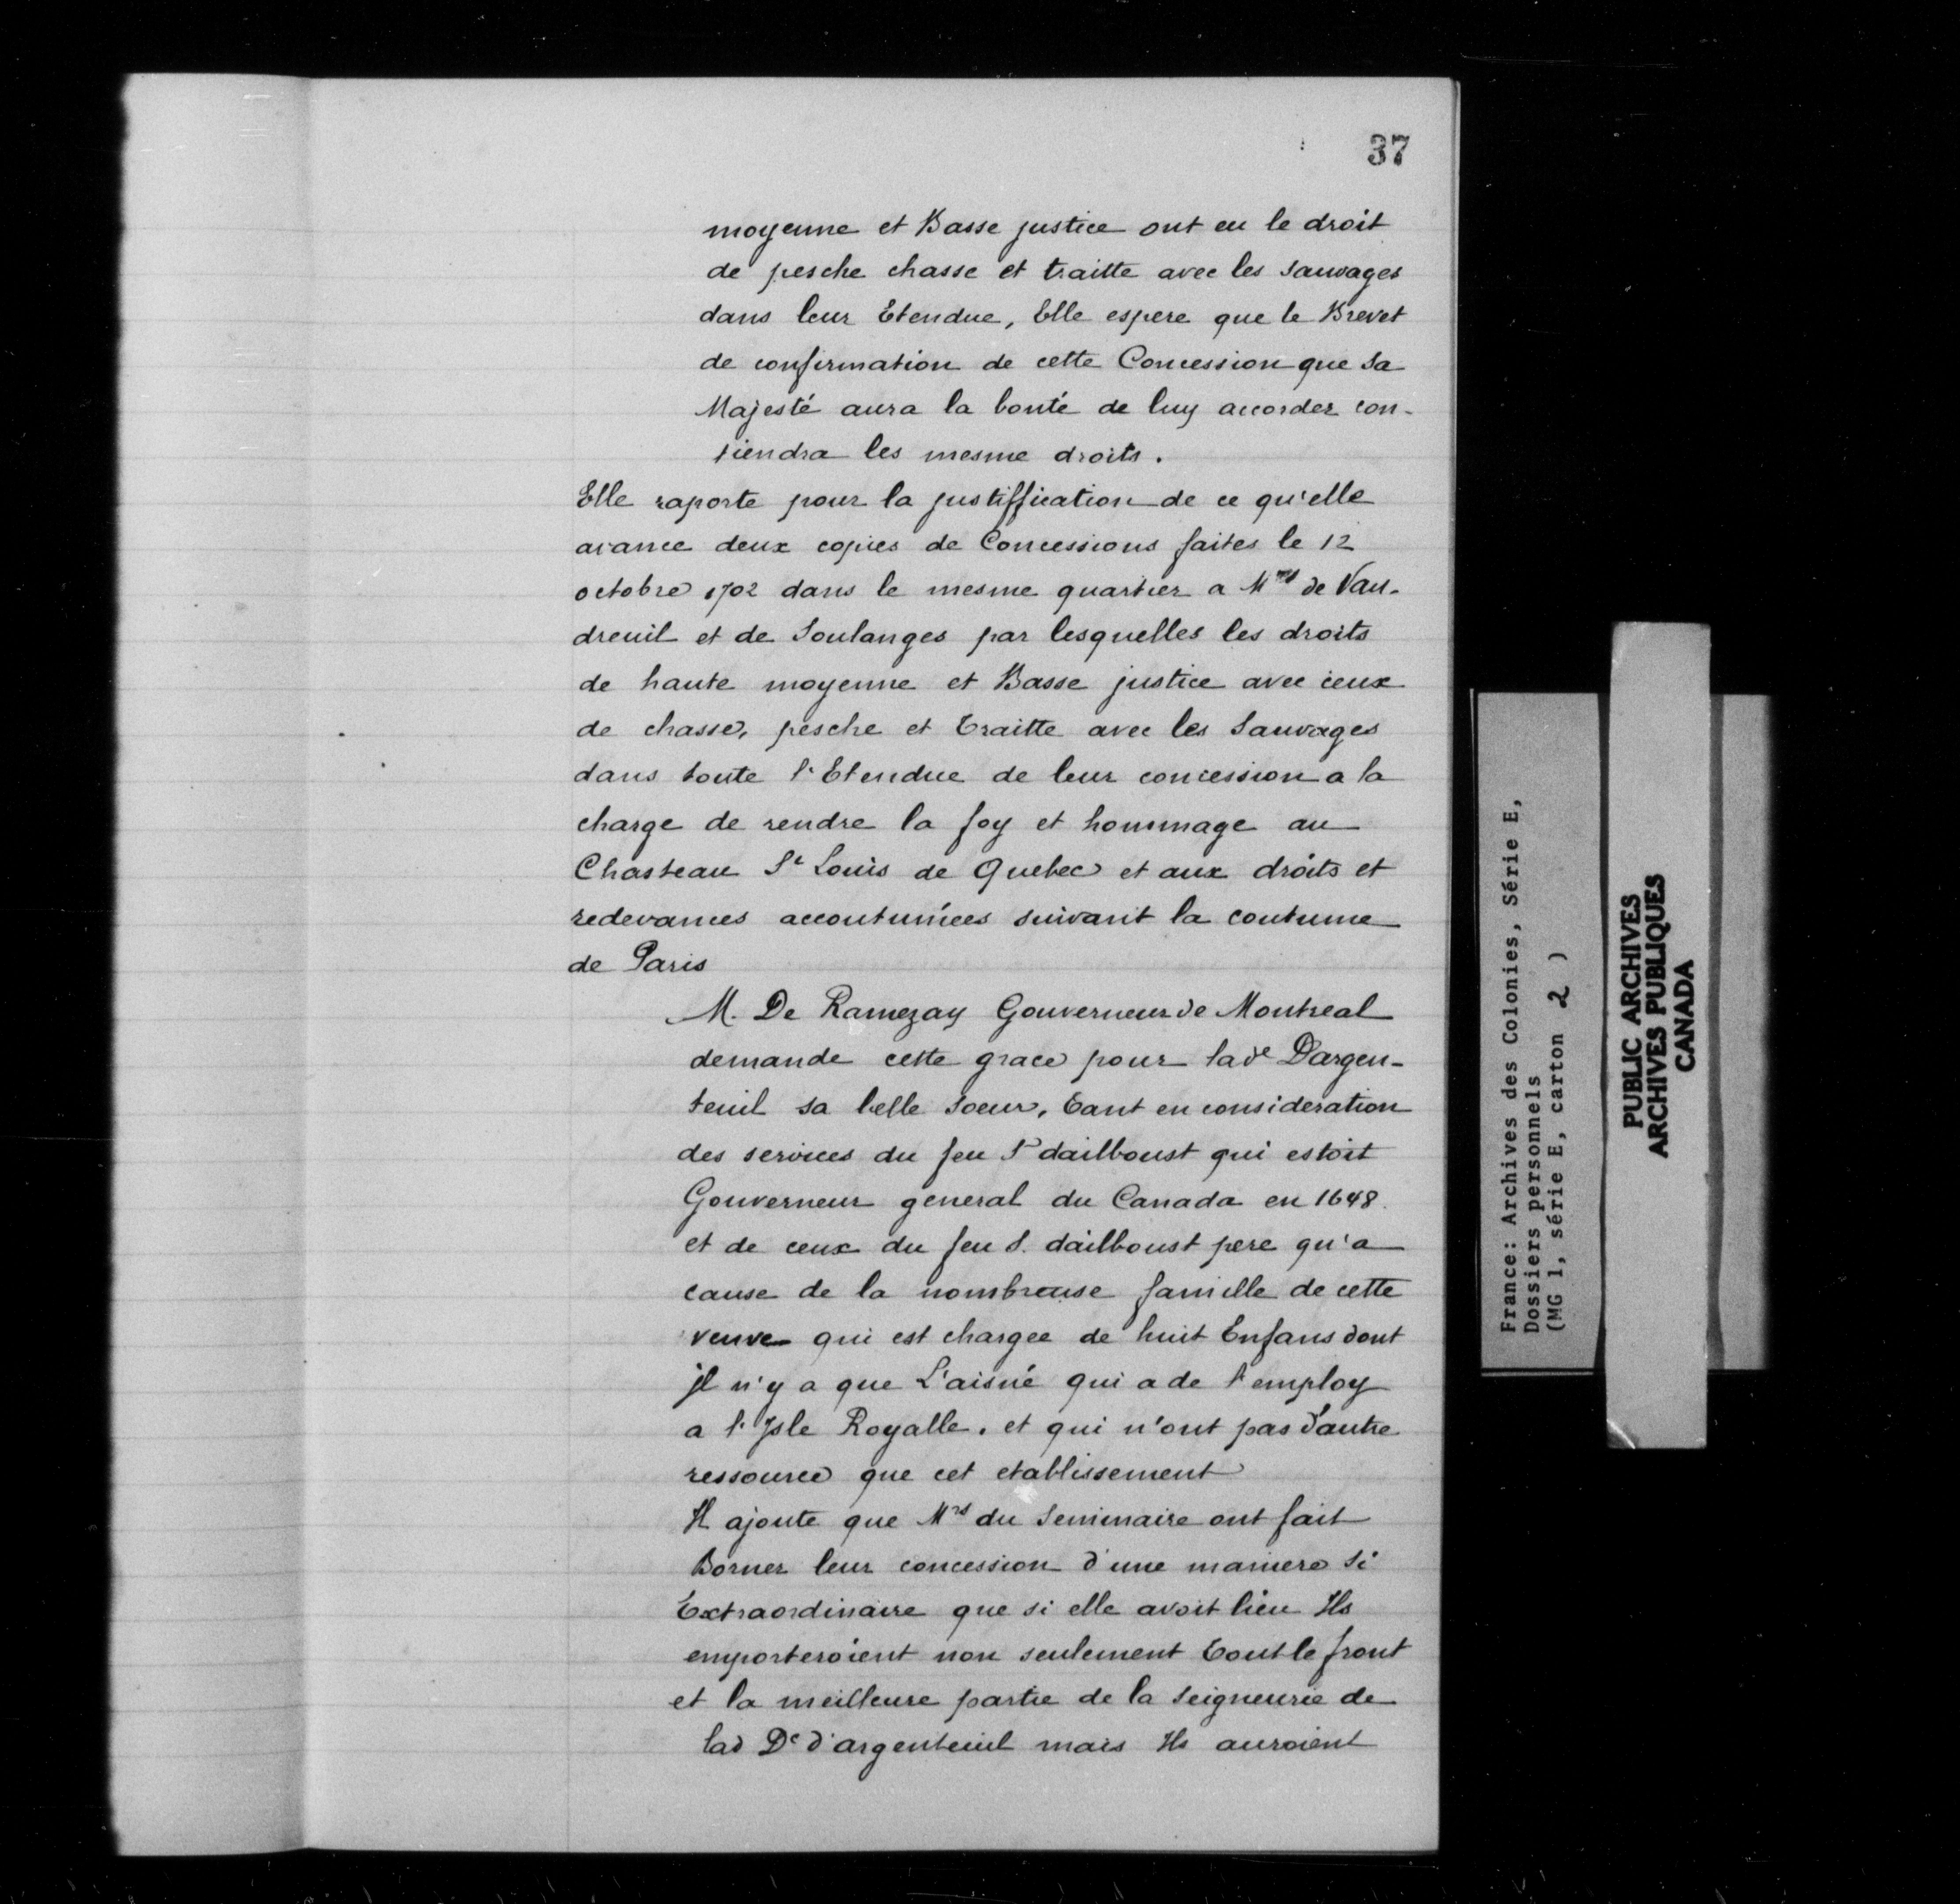 37
moyenne et Basse justice ont eu le droit
de pesche chasse et traitte avec les sauvages
dans leur Etendue, Elle espere que le Brevet
de confirmation de cette Concession que sa
Majesté aura la bonté de luy accorder con-
tiendra les mesme droits.
Elle raporte pour la justiffication de ce qu'elle
avance deux copies de Concessions faites le 12
octobre 1702 dans le mesme quartier a Mrs de Vau-
dreuil et de Soulanges par lesquelles les droits
de haute moyenne et Basse justice avec ceux
de chasse, pesche et traitte avec les Sauvages
dans toute l'Etendue de leur concession a la
charge de rendre la foy et hommage au
Chasteau St Louis de Quebec et aux droits et
redevances accoutumées suivant la coutume
de Paris
M. De Ramezay Gouverneur de Montreal
demande cette grace pour lade Dargen-
teuil sa belle soeur, tant en consideration
des services du feu Sr dailboust qui estoit
Gouverneur general du Canada en 1648.
et de ceux du feu S. dailboust pere qu'a
cause de la nombreuse famille de cette
veuve qui est chargee de huit Enfans dont
jl n'y a que L'aisné qui a de l'employ
a l'Jsle Royalle. et qui n'ont pas d'autre
ressource que cet etablissement
Il ajoute que Mrs du Seminaire ont fait
Borner leur concession d'une maniere si
Extraordinaire que si elle avoit lieu Ils
emporteroient non seulement tout le front
et la meilleure partie de la seigneurie de
lad De d'argenteuil mais Ils auroient
France: Archives des Colonies, Série E,
Dossiers personnels
(MG 1, série E, carton 2 )
PUBLIC ARCHIVES
ARCHIVES PUBLIQUES
CANADA